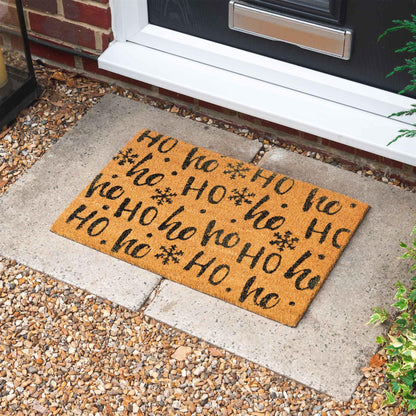 HO • ho • HO • ho
ho • HO • ho
ho • HO • ho • HO
HO • ho • HO • ho
ho • HO • ho